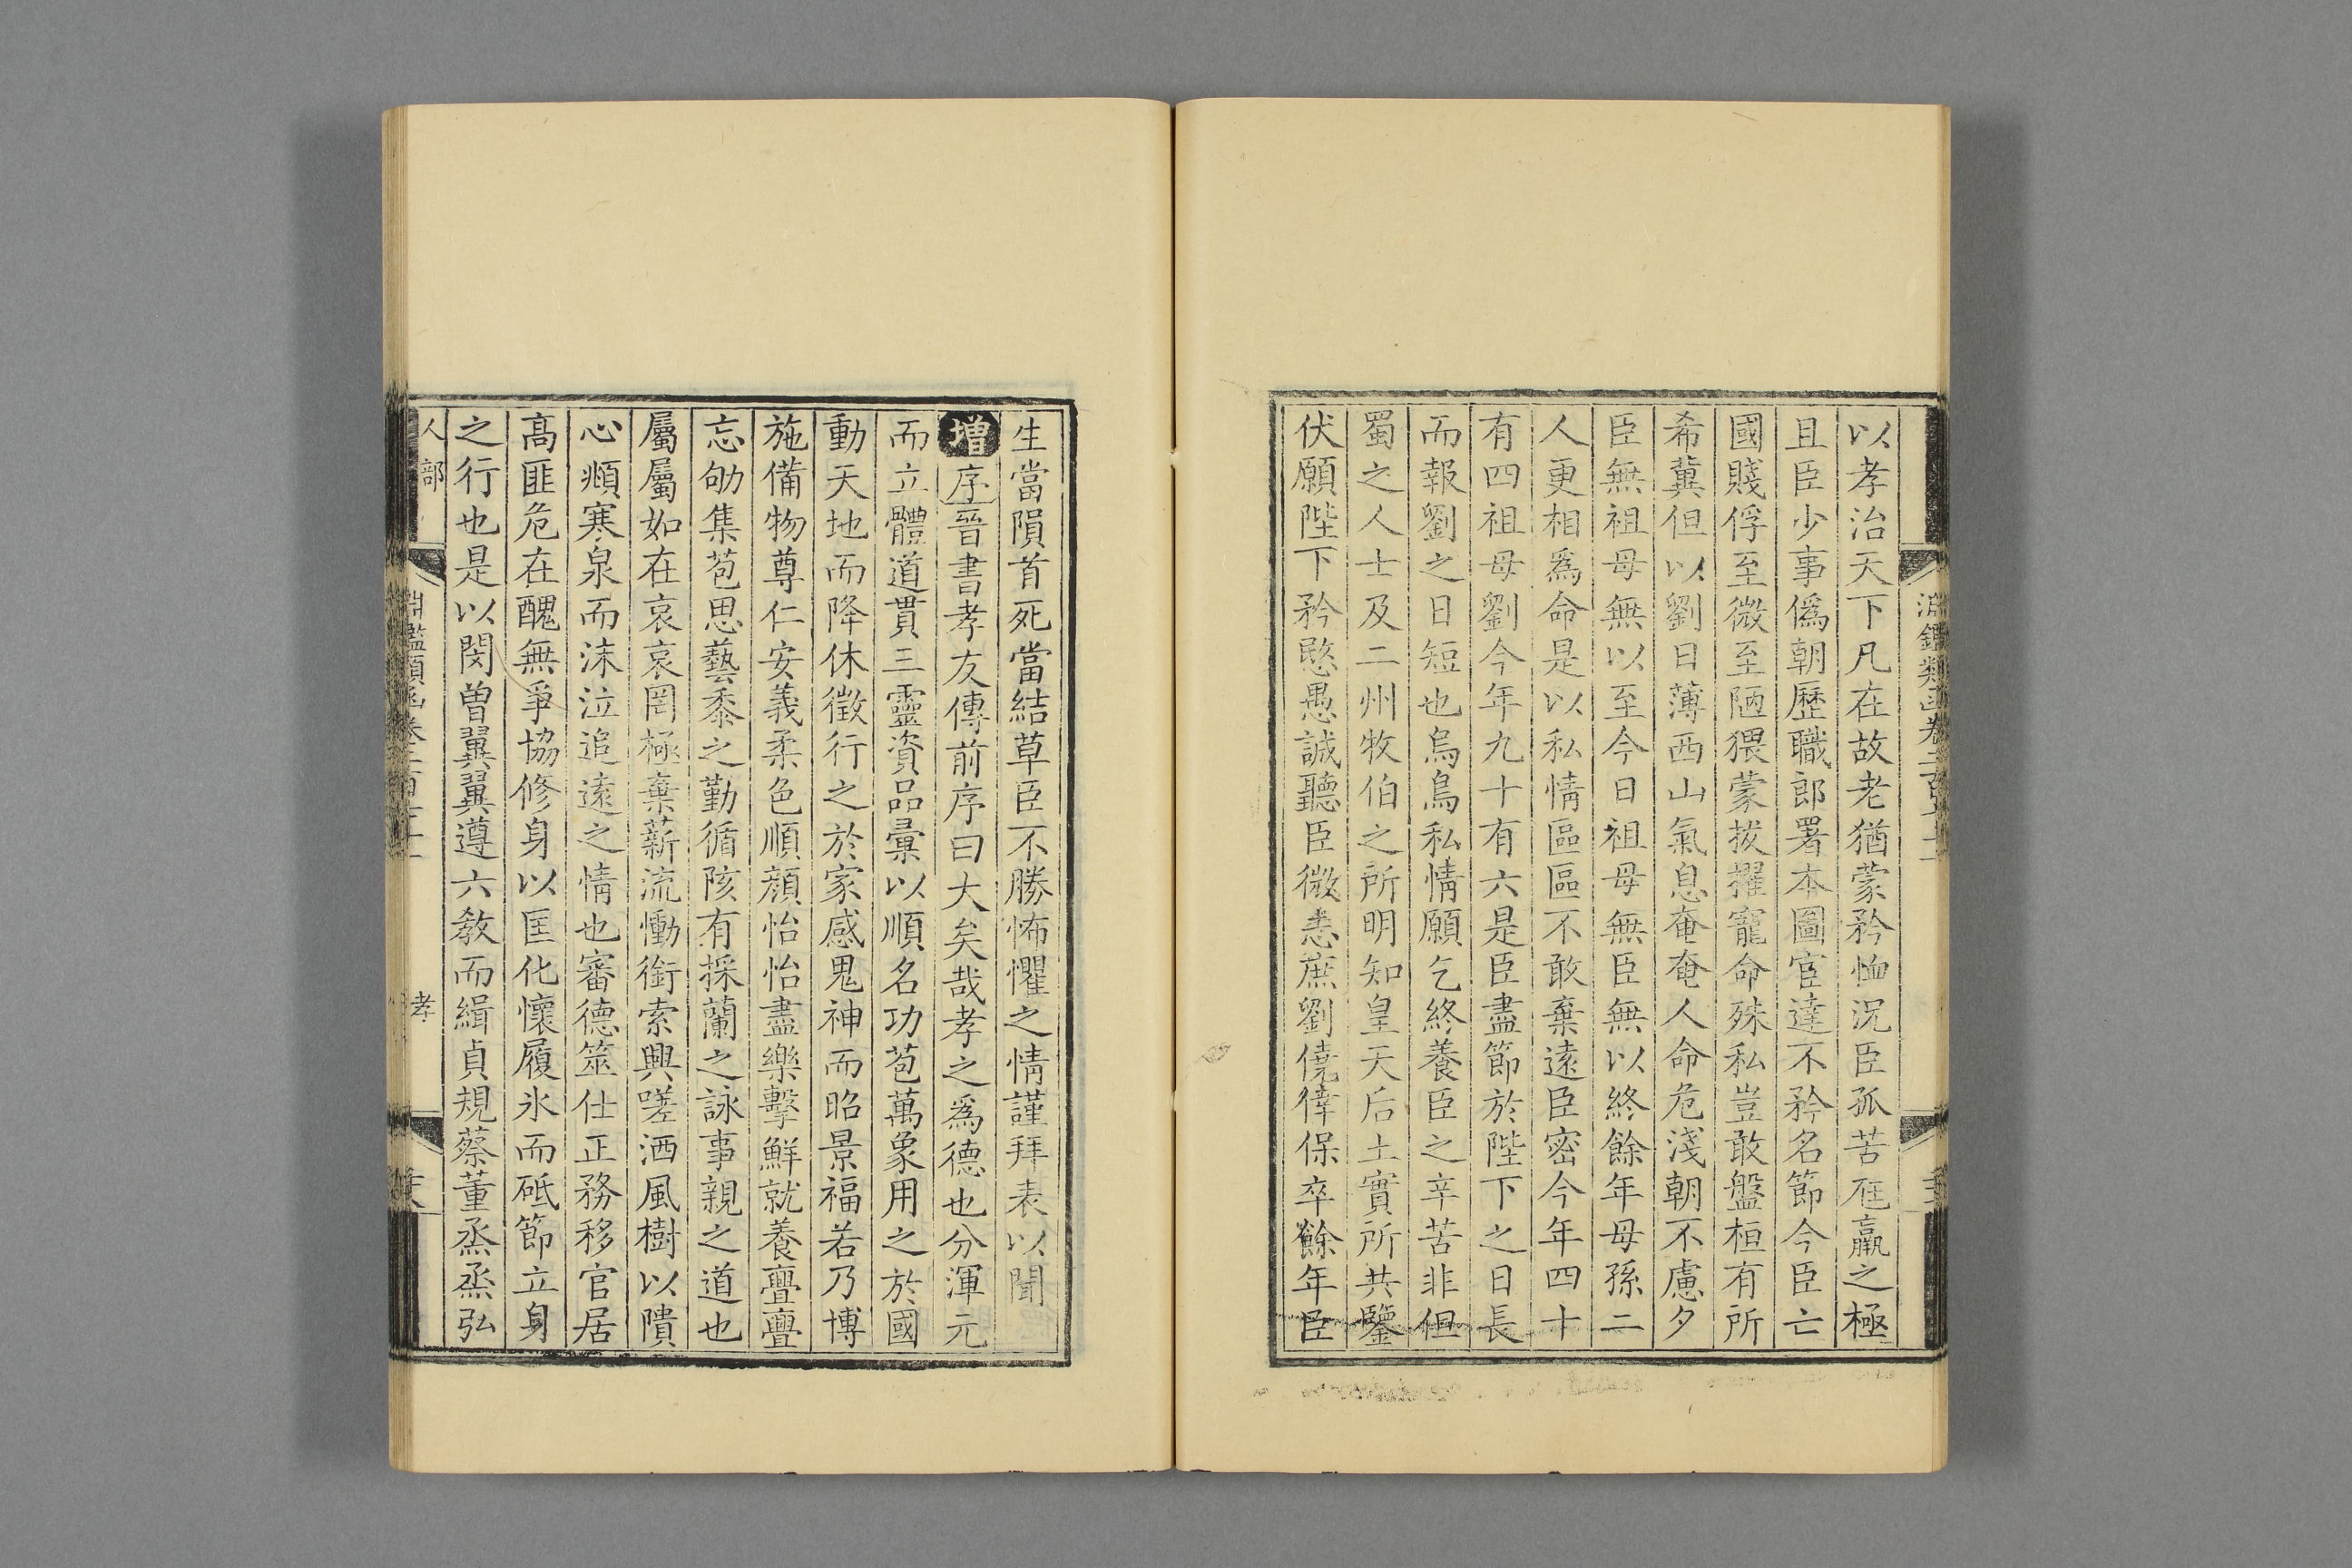 以孝治天下凡在故老猶蒙矜恤況臣孤苦尫羸之極
且臣少事僞朝歷職郎署本圖宦達不矜名節今臣亡
國賤俘至微至陋猥蒙拔擢寵命殊私豈敢盤桓有所
希冀但以劉日薄西山氣息奄奄人命危淺朝不慮夕
臣無祖母無以至今日祖母無臣無以終餘年母孫二
人更相爲命是以私情區區不敢棄遠臣密今年四十
有四祖母劉今年九十有六是臣盡節於陛下之日長
而報劉之日短也烏鳥私情願乞終養臣之辛苦非但
蜀之人士及二州牧伯之所明知皇天后土實所共鑒
伏願陛下矜愍愚誠聽臣微志庶劉僥倖保卒餘年臣
生當隕首死當結草臣不勝怖懼之情謹拜表以聞
增序晉書孝友傳前序曰大矣哉孝之爲德也分渾元
而立體道貫三靈資品彙以順名功苞萬象用之於國
動天地而降休徵行之於家感鬼神而昭景福若乃博
施備物尊仁安義柔色順顏怡怡盡樂擊鮮就養亹亹
忘劬集苞思藝黍之勤循陔有採蘭之詠事親之道也
屬屬如在哀哀罔極棄薪流慟銜索興嗟洒風樹以隤
心頫寒泉而沬泣追遠之情也審德筮仕正務移官居
高匪危在醜無爭協修身以匡化懷履氷而砥節立身
之行也是以閔曾翼翼遵六教而緝貞規蔡董烝烝弘
人部
孝